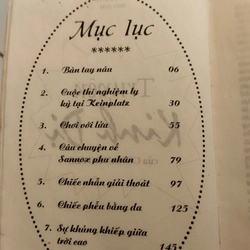 Mục lục
******
1. Bàn tay nâu 06
2. Cuộc thí nghiệm ly
kỳ tại Keinplatz 30
3. Chơi với lửa 55
4. Câu chuyện về
Sannox phu nhân 79
5. Chiếc nhẫn giải thoát 97
6. Chiếc phễu bằng da 125
7. Sự khủng khiếp giữa
trời cao 145